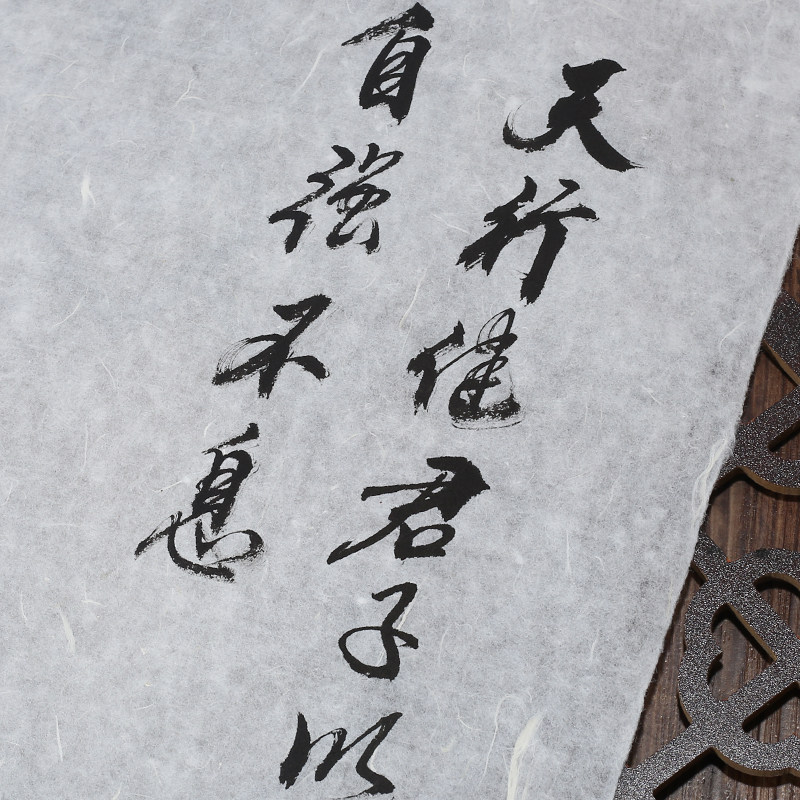 天行健君子以
自强不息